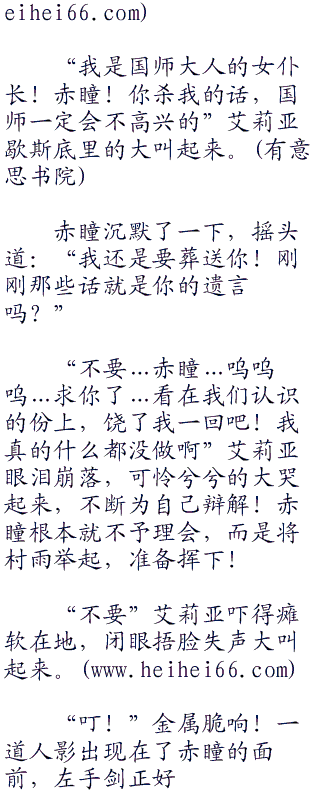 eihei66.com)
“我是国师大人的女仆
长！赤瞳！你杀我的话，国
师一定会不高兴的”艾莉亚
歇斯底里的大叫起来。(有意
思书院)
赤瞳沉默了一下，摇头
道：“我还是要葬送你！刚
刚那些话就是你的遗言
吗？”
“不要…赤瞳…呜呜
呜…求你了…看在我们认识
的份上，饶了我一回吧！我
真的什么都没做啊”艾莉亚
眼泪崩落，可怜兮兮的大哭
起来，不断为自己辩解！赤
瞳根本就不予理会，而是将
村雨举起，准备挥下！
“不要”艾莉亚吓得瘫
软在地，闭眼捂脸失声大叫
起来。(www.heihei66.com)
“叮！”金属脆响！一
道人影出现在了赤瞳的面
前，左手剑正好